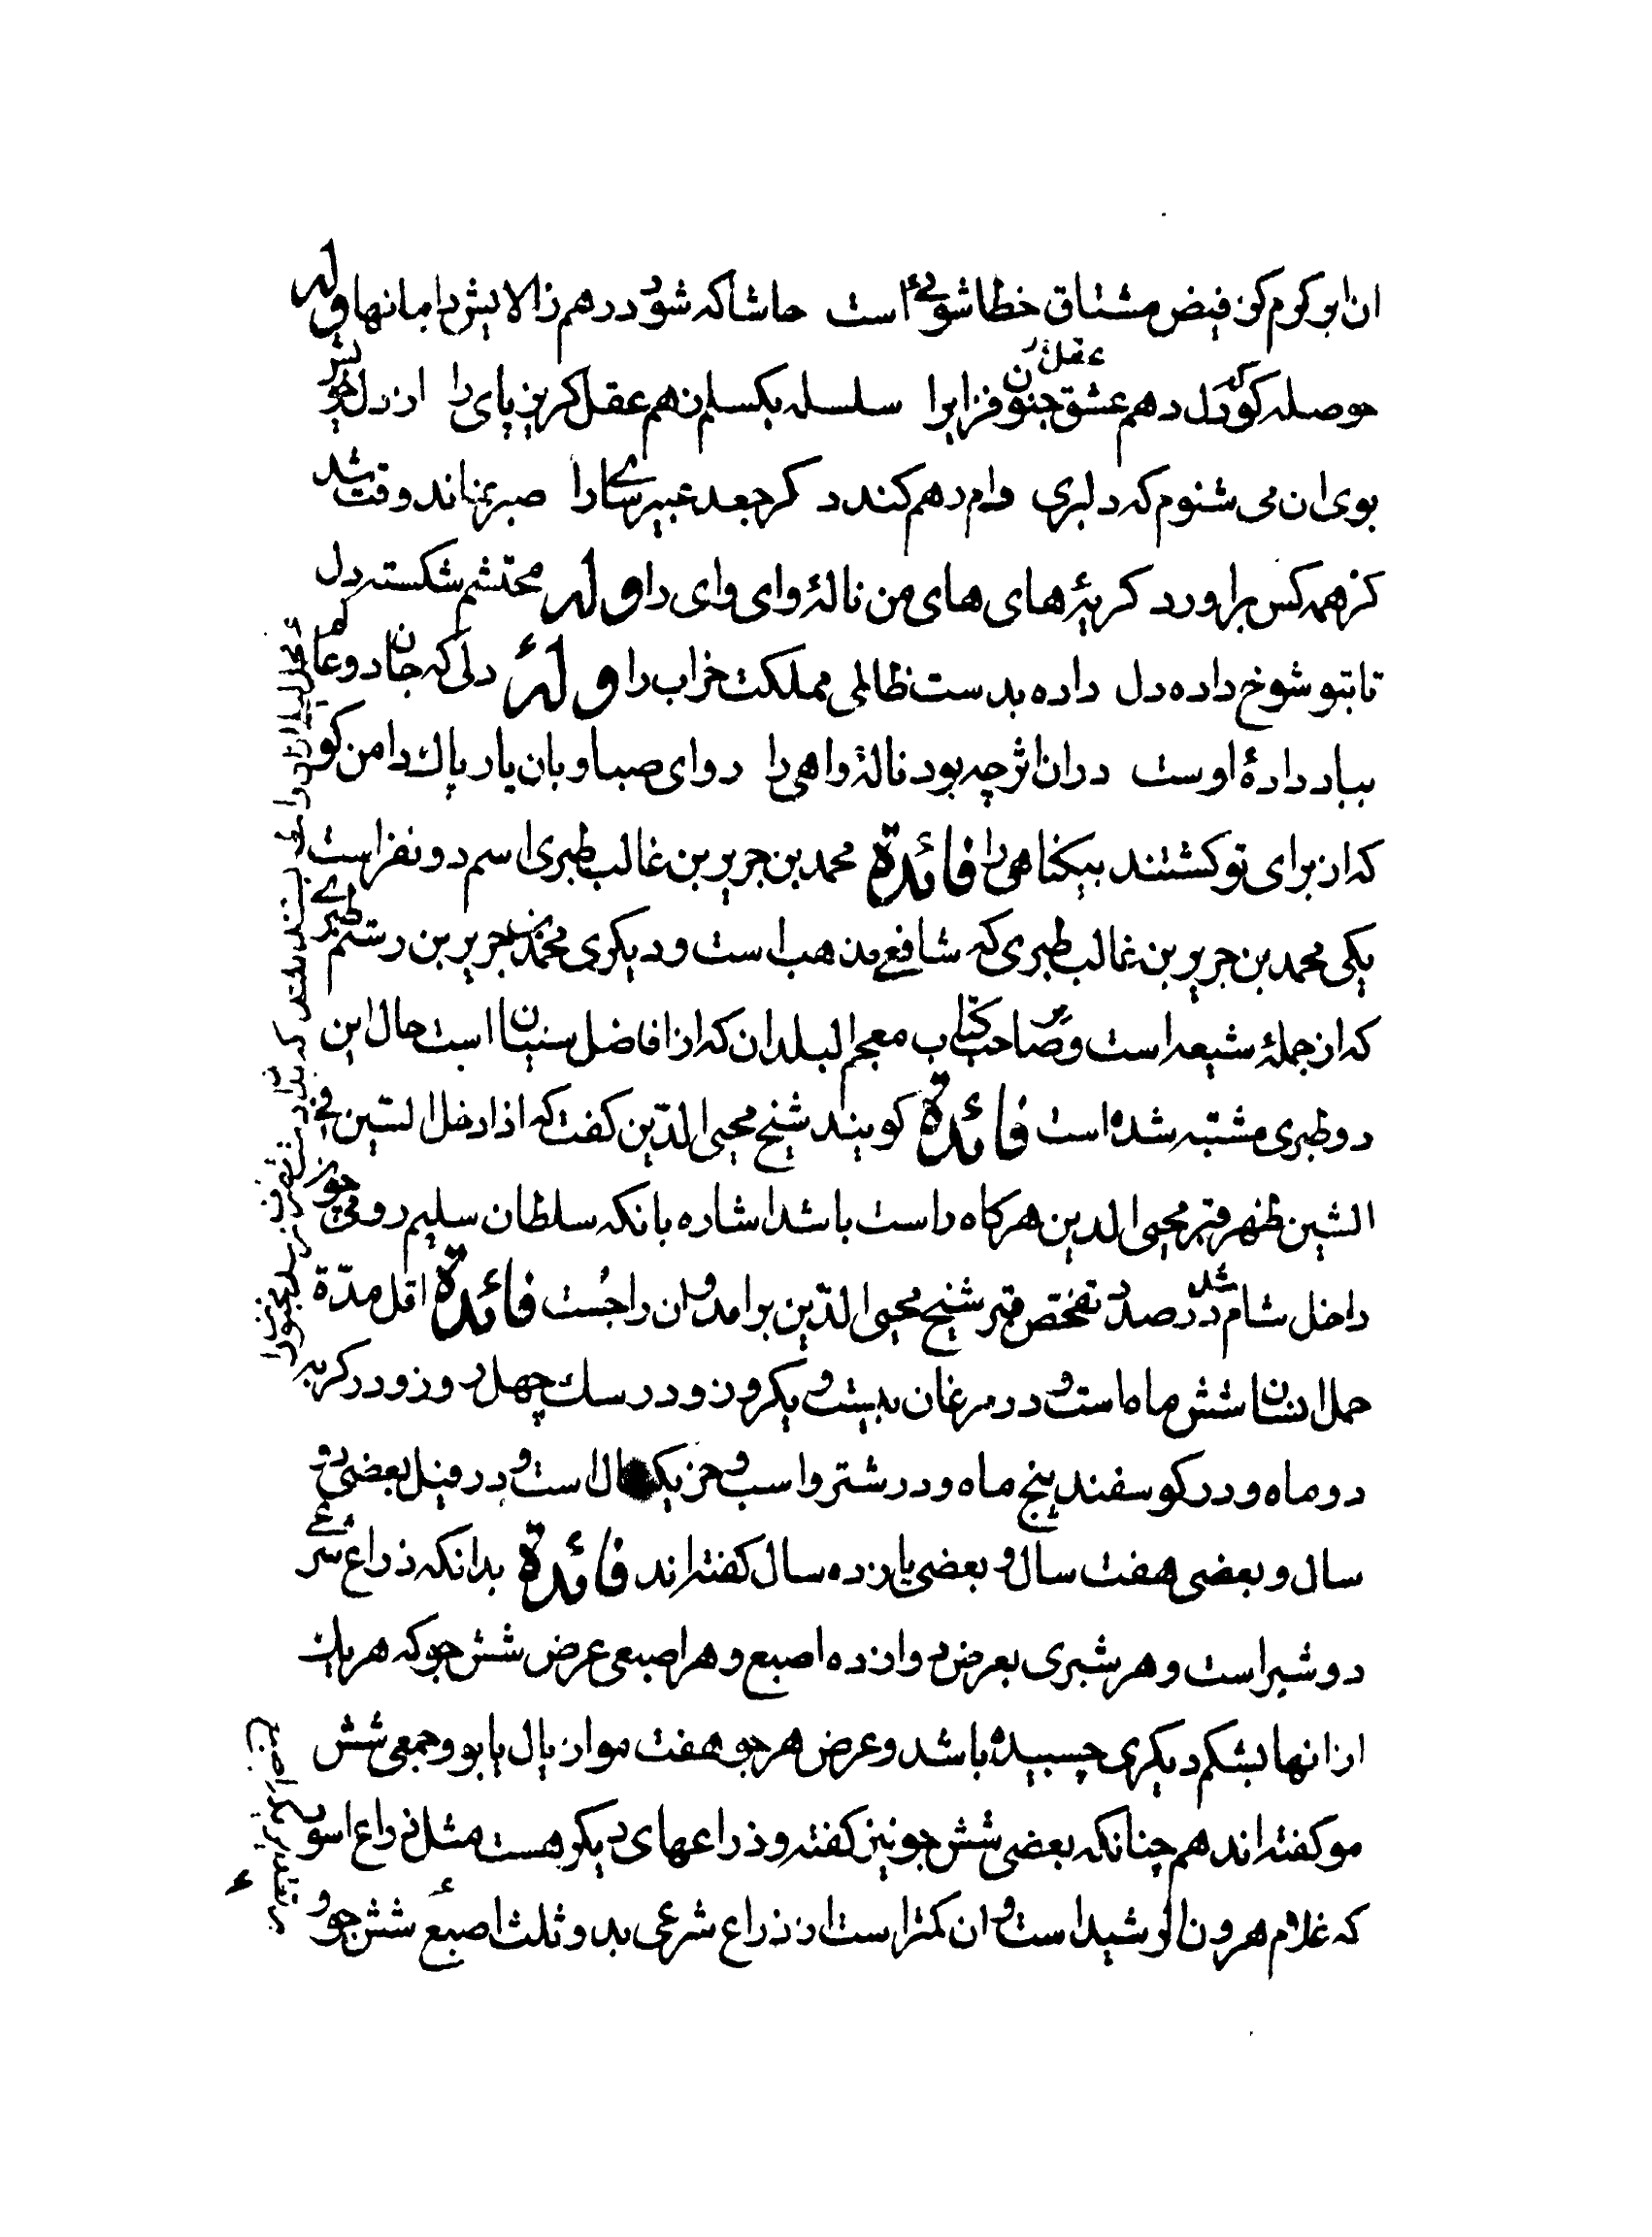 ان ابر کرم کز فیض مشتاق خطا شوئی است حاشا که شود درهم زالایش دامانها وله
حوصله کو که دل دهم عشق جنون فزایرا سلسله بکسلم زهم عقل کریز پای را از دل خویش
بوی ان می شنوم که دلبری دام رهم کند د کر جعد عبیر سای را صبر نماند وقت شد
کز همه کس براورد کریهٔ های های من نالهٔ وای وای را وله محتشم شکسته دل
تا بتو شوخ داده دل داده بدست ظالمی مملکت خراب را وله دلی که جان دو عالم
بباد دادهٔ اوست دران اثر چه بود نالهٔ واهی را روای صبا و بان یار پاك دامن کو
که از برای تو کشتند بیکناهی را فائدة محمد بن جریر بن غالب طبری اسم دو نفر است
یکی محمد بن جریر بن غالب طبری که شافعی مذهب است و دیکری محمد بن جریر بن رستم طبری
که از جملهٔ شیعه است و بر صاحب کتاب معجم البلدان که از افاضل سنیان است حال این
دو طبری مشتبه شده است فائدة کویند شیخ محیی الدّین کفت که اذا دخل السّین فی
الشین ظهر قبر محیی الدین هرکاه راست باشد اشاره بانکه سلطان سلیم رومی چون
داخل شام شد در صدد تفحّص قبر شیخ محیی الدّین برامد و ان را جُست فائدة اقل مدّة
حمل انسان شش ماه است و در مرغان بیست و یکروز و در سك چهل روز و در کربه
دو ماه و در کوسفند پنج ماه و در شتر و اسب و خر یک ال است و در فیل بعضی دو
سال و بعضی هفت سال و بعضی یازده سال کفته اند فائدة بدانکه ذراع شرعی
دو شبر است و هر شبری بعرض دوازده اصبع و هر اصبعی عرض شش جو که هریك
از انها بشکم دیکری چسبیده باشد و عرض هر جو هفت مو از یال یابو و جمعی شش
مو کفته اند هم چنانکه بعضی شش جو نیز کفته و ذراعهای دیکر هست مثل ذراع اسود
که غلام هرون الرشید است و ان کمتر است از ذراع شرعی بدو ثلث اصبع شش جو و